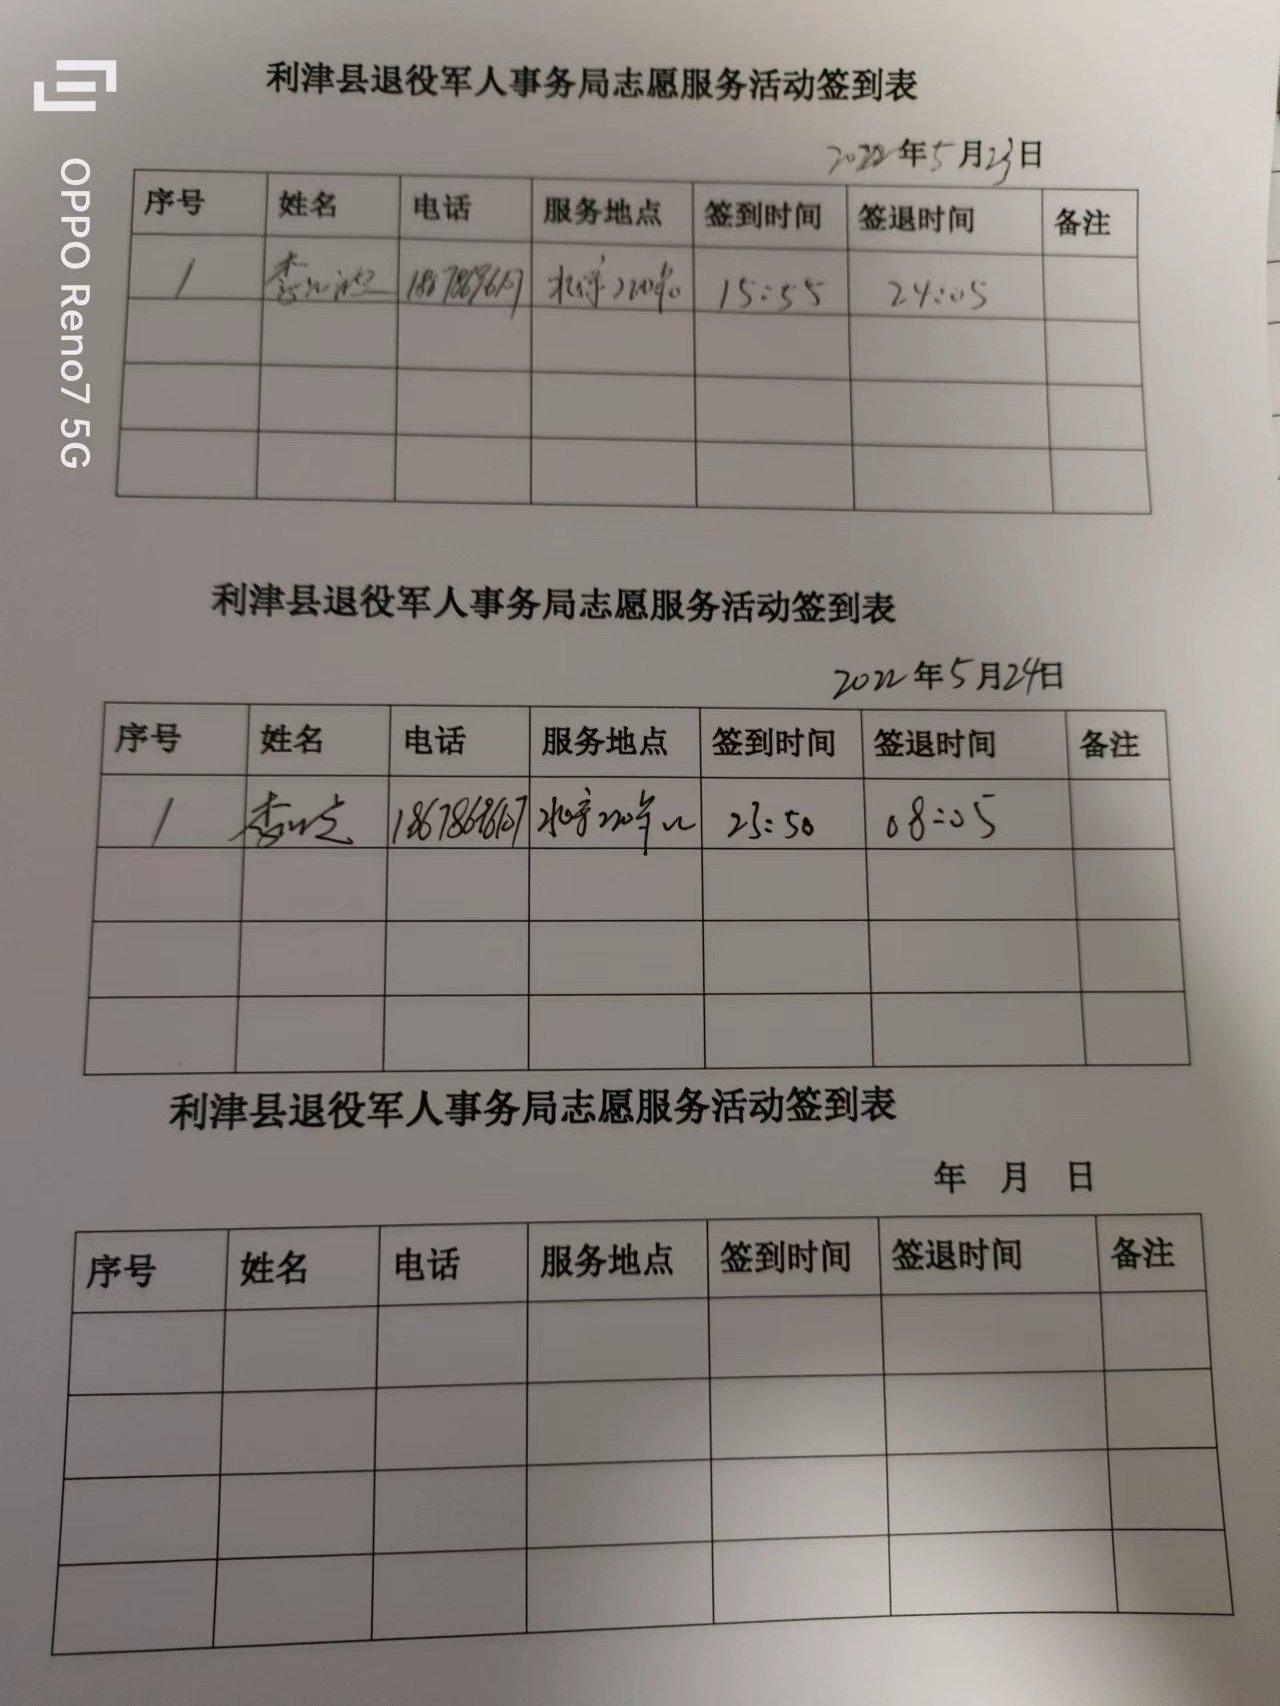 OPPO Reno7 5G
利津县退役军人事务局志愿服务活动签到表
2022年5月23日
序号 姓名 电话 服务地点 签到时间 签退时间 备注
1 李 15:55 24:05
利津县退役军人事务局志愿服务活动签到表
2022年5月24日
序号 姓名 电话 服务地点 签到时间 签退时间 备注
1 李 23:50 08:05
利津县退役军人事务局志愿服务活动签到表
年 月 日
序号 姓名 电话 服务地点 签到时间 签退时间 备注